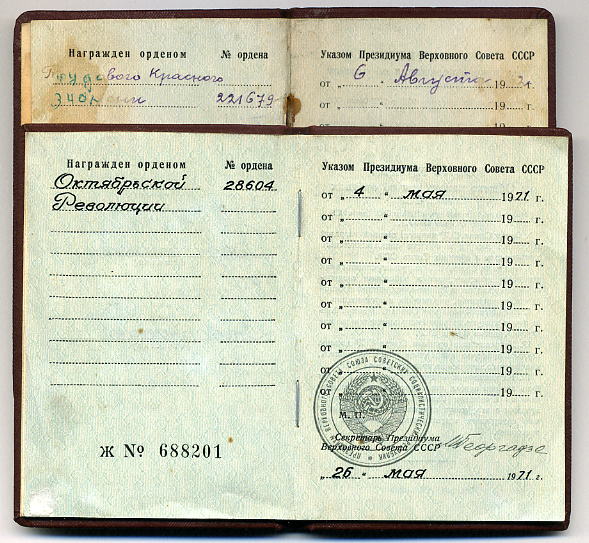 Награжден орденом № ордена Указом Президиума Верховного Совета СССР
Трудового Красного от „ 6 “ Августа 19 г.
Знамени 221679 от „ “ 19 г.
Награжден орденом № ордена Указом Президиума Верховного Совета СССР
Октябрьской 28604 от „ 4 “ мая 1971 г.
Революции от „ “ 19 г.
от „ “ 19 г.
от „ “ 19 г.
от „ “ 19 г.
от „ “ 19 г.
от „ “ 19 г.
от „ “ 19 г.
от „ “ 19 г.
от „ “ 19 г.
М. П.
Секретарь Президиума
Верховного Совета СССР МГеоргадзе
Ж № 688201
„ 26 “ мая 1971 г.